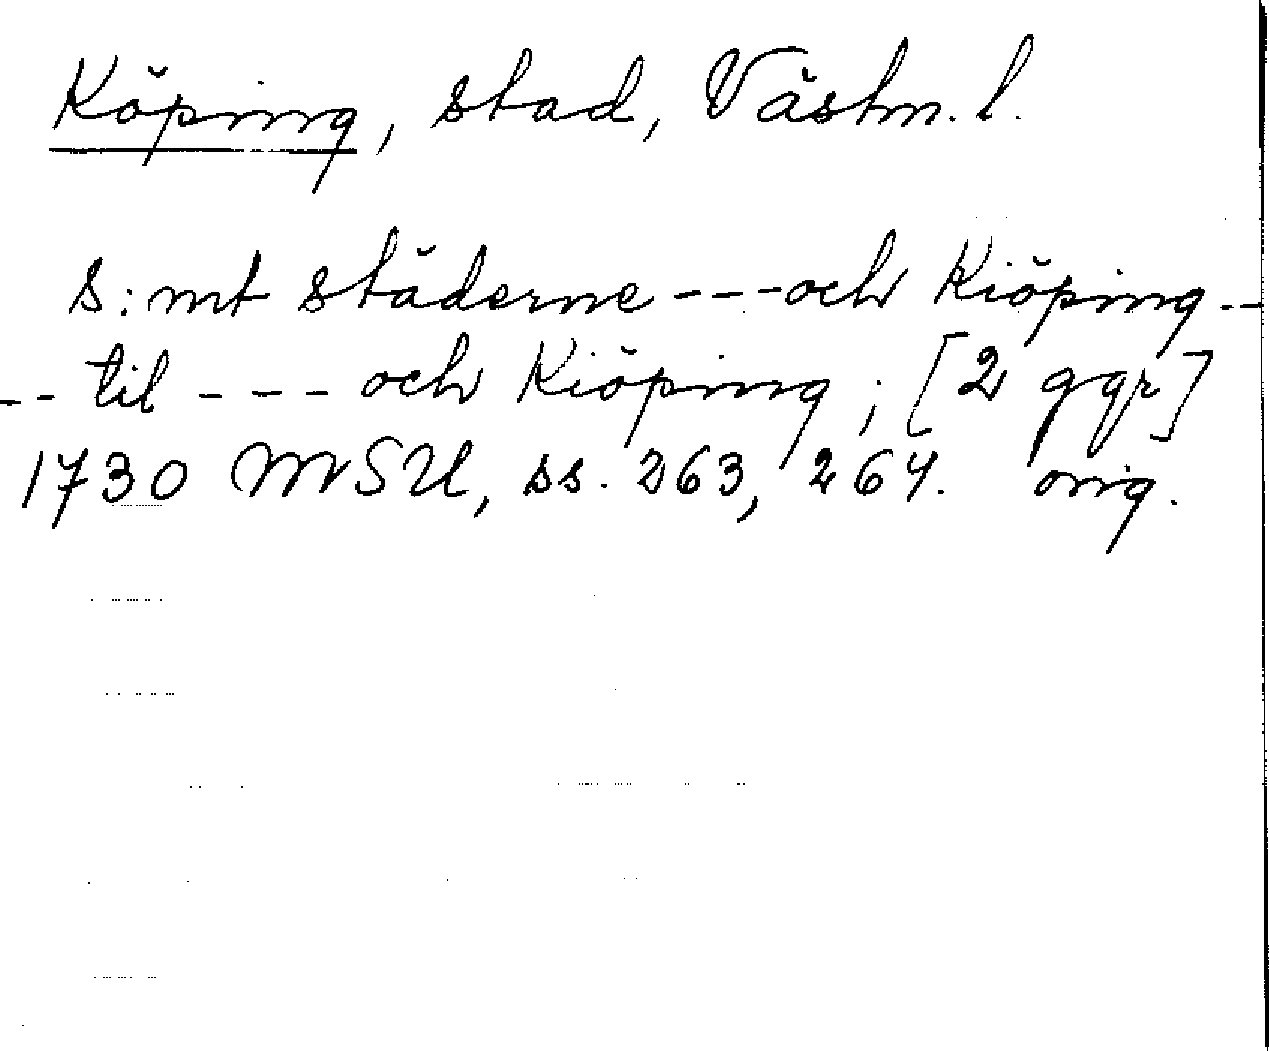 Köping, stad, Västm. l.
s:mt städerne - - - och Kiöping - -
- - til - - - och Kiöping; [2 ggr]
1730 MSU, ss. 263, 264. orig.